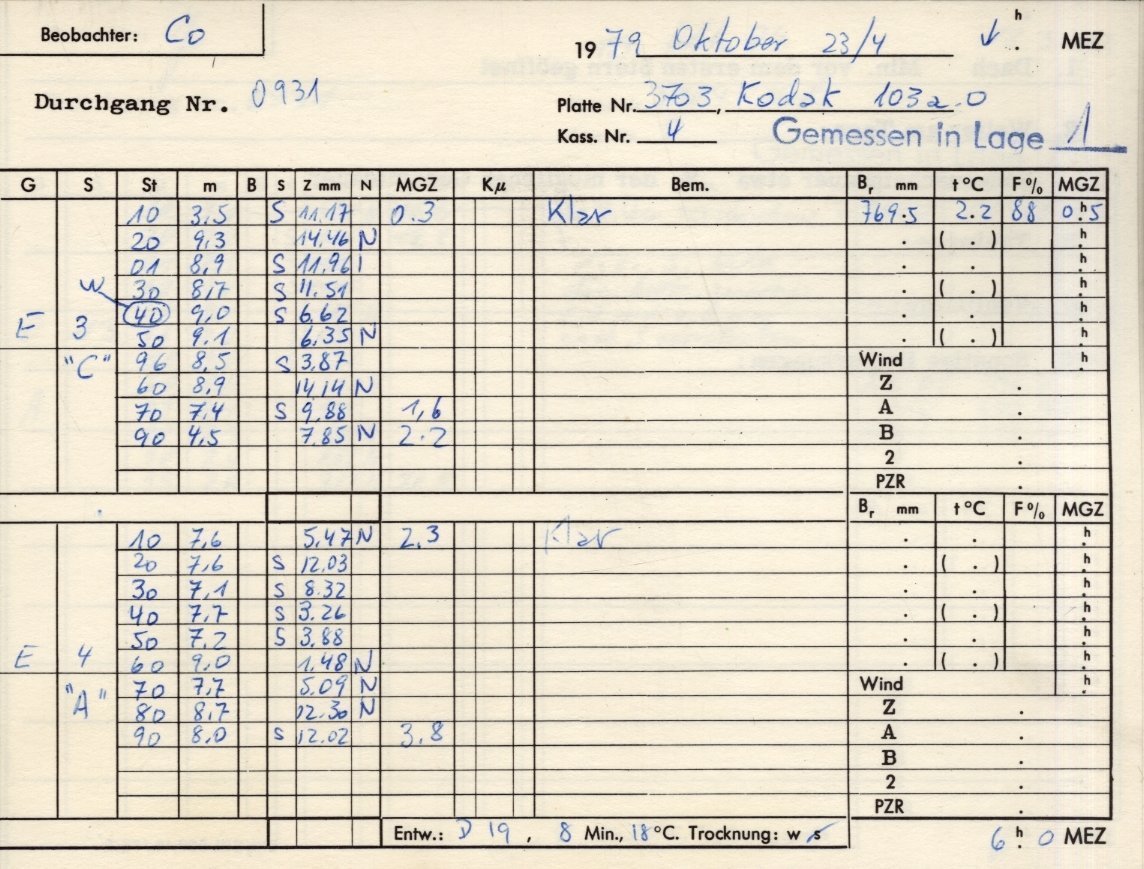 Beobachter: Co
1979 Oktober 23/4 ↓ h . MEZ
Durchgang Nr. 0931
Platte Nr. 3703, Kodak 103a.O
Kass. Nr. 4 Gemessen in Lage 1
G S St m B S Z mm N MGZ Kμ Bem. Br mm t °C F % MGZ
10 3,5 S 11.17 0.3 Klar 769.5 2.2 88 0h.5
20 9,3 14.46 N . ( . ) h.
01 8,9 S 11.96 . . h.
W 30 8,7 S 11.51 . ( . ) h.
40 9,0 S 6.62 . . h.
E 3 50 9.1 6.35 N . ( . ) h.
"C" 96 8,5 S 3.87 Wind
60 8,9 14.14 N Z .
70 7,4 S 9.88 1,6 A .
90 4,5 7.85 N 2.2 B .
2 .
PZR .
Br mm t °C F % MGZ
10 7,6 5.47 N 2.3 Klar . . h.
20 7,6 S 12.03 . ( . ) h.
30 7,1 S 8.32 . . h.
40 7,7 S 3.26 . ( . ) h.
50 7,2 S 3.88 . . h.
E 4 60 9,0 1.48 N . ( . ) h.
"A" 70 7,7 5.09 N Wind
80 8,7 12.30 N Z .
90 8,0 S 12.02 3.8 A .
B .
2 .
PZR .
Entw.: D 19 , 8 Min., 18 °C. Trocknung: w s
6 h. 0 MEZ